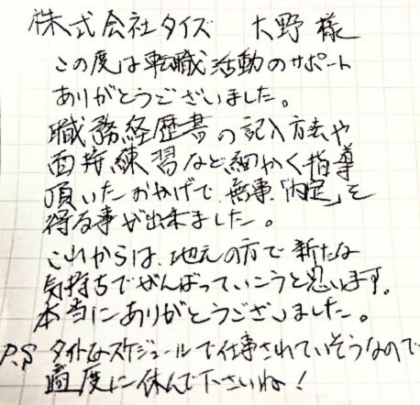 株式会社タイズ 大野様
この度は転職活動のサポート
ありがとうございました。
職務経歴書の記入方法や
面接練習など細かく指導
頂いたおかげで、無事「内定」を
得る事が出来ました。
これからは、地元の方で新たな
気持ちでがんばっていこうと思います。
本当にありがとうございました。
P.S タイトなスケジュールで仕事されていそうなので
適度に休んで下さいね!